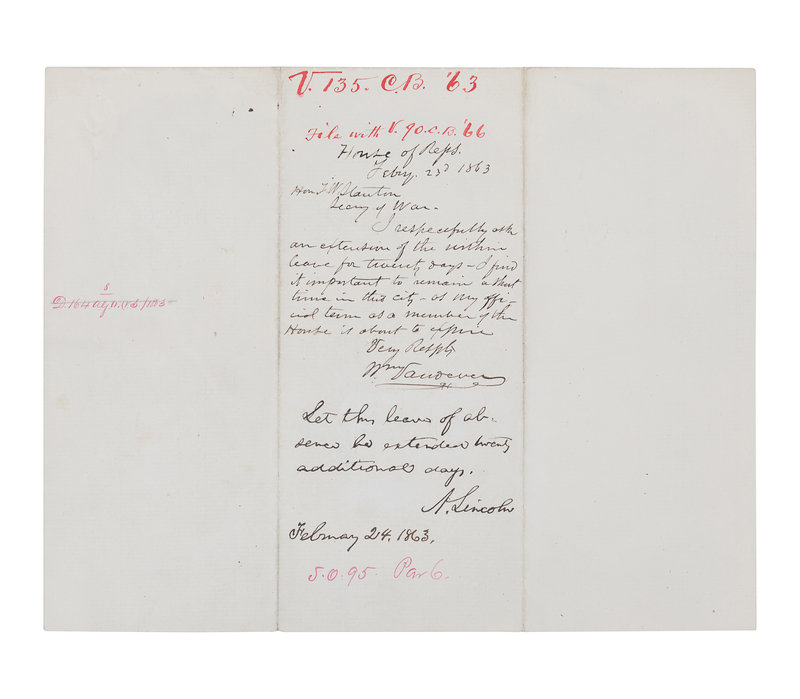 V. 135. C.B. '63
File with V. 90. C.B. '66
House of Reps.
Feby. 23d 1863
Hon E. M. Stanton
Secry of War.
I respecfully ask
an extension of the within
leave for twenty days - I find
it important to remain a short
time in this city - as my offi-
cial term as a member of the
House is about to expire
Very Respfly
Wm Vandever
Let this leave of ab-
sence be extended twenty
additional days.
A. Lincoln
February 24. 1863.
S.O. 95. Par 6.
5